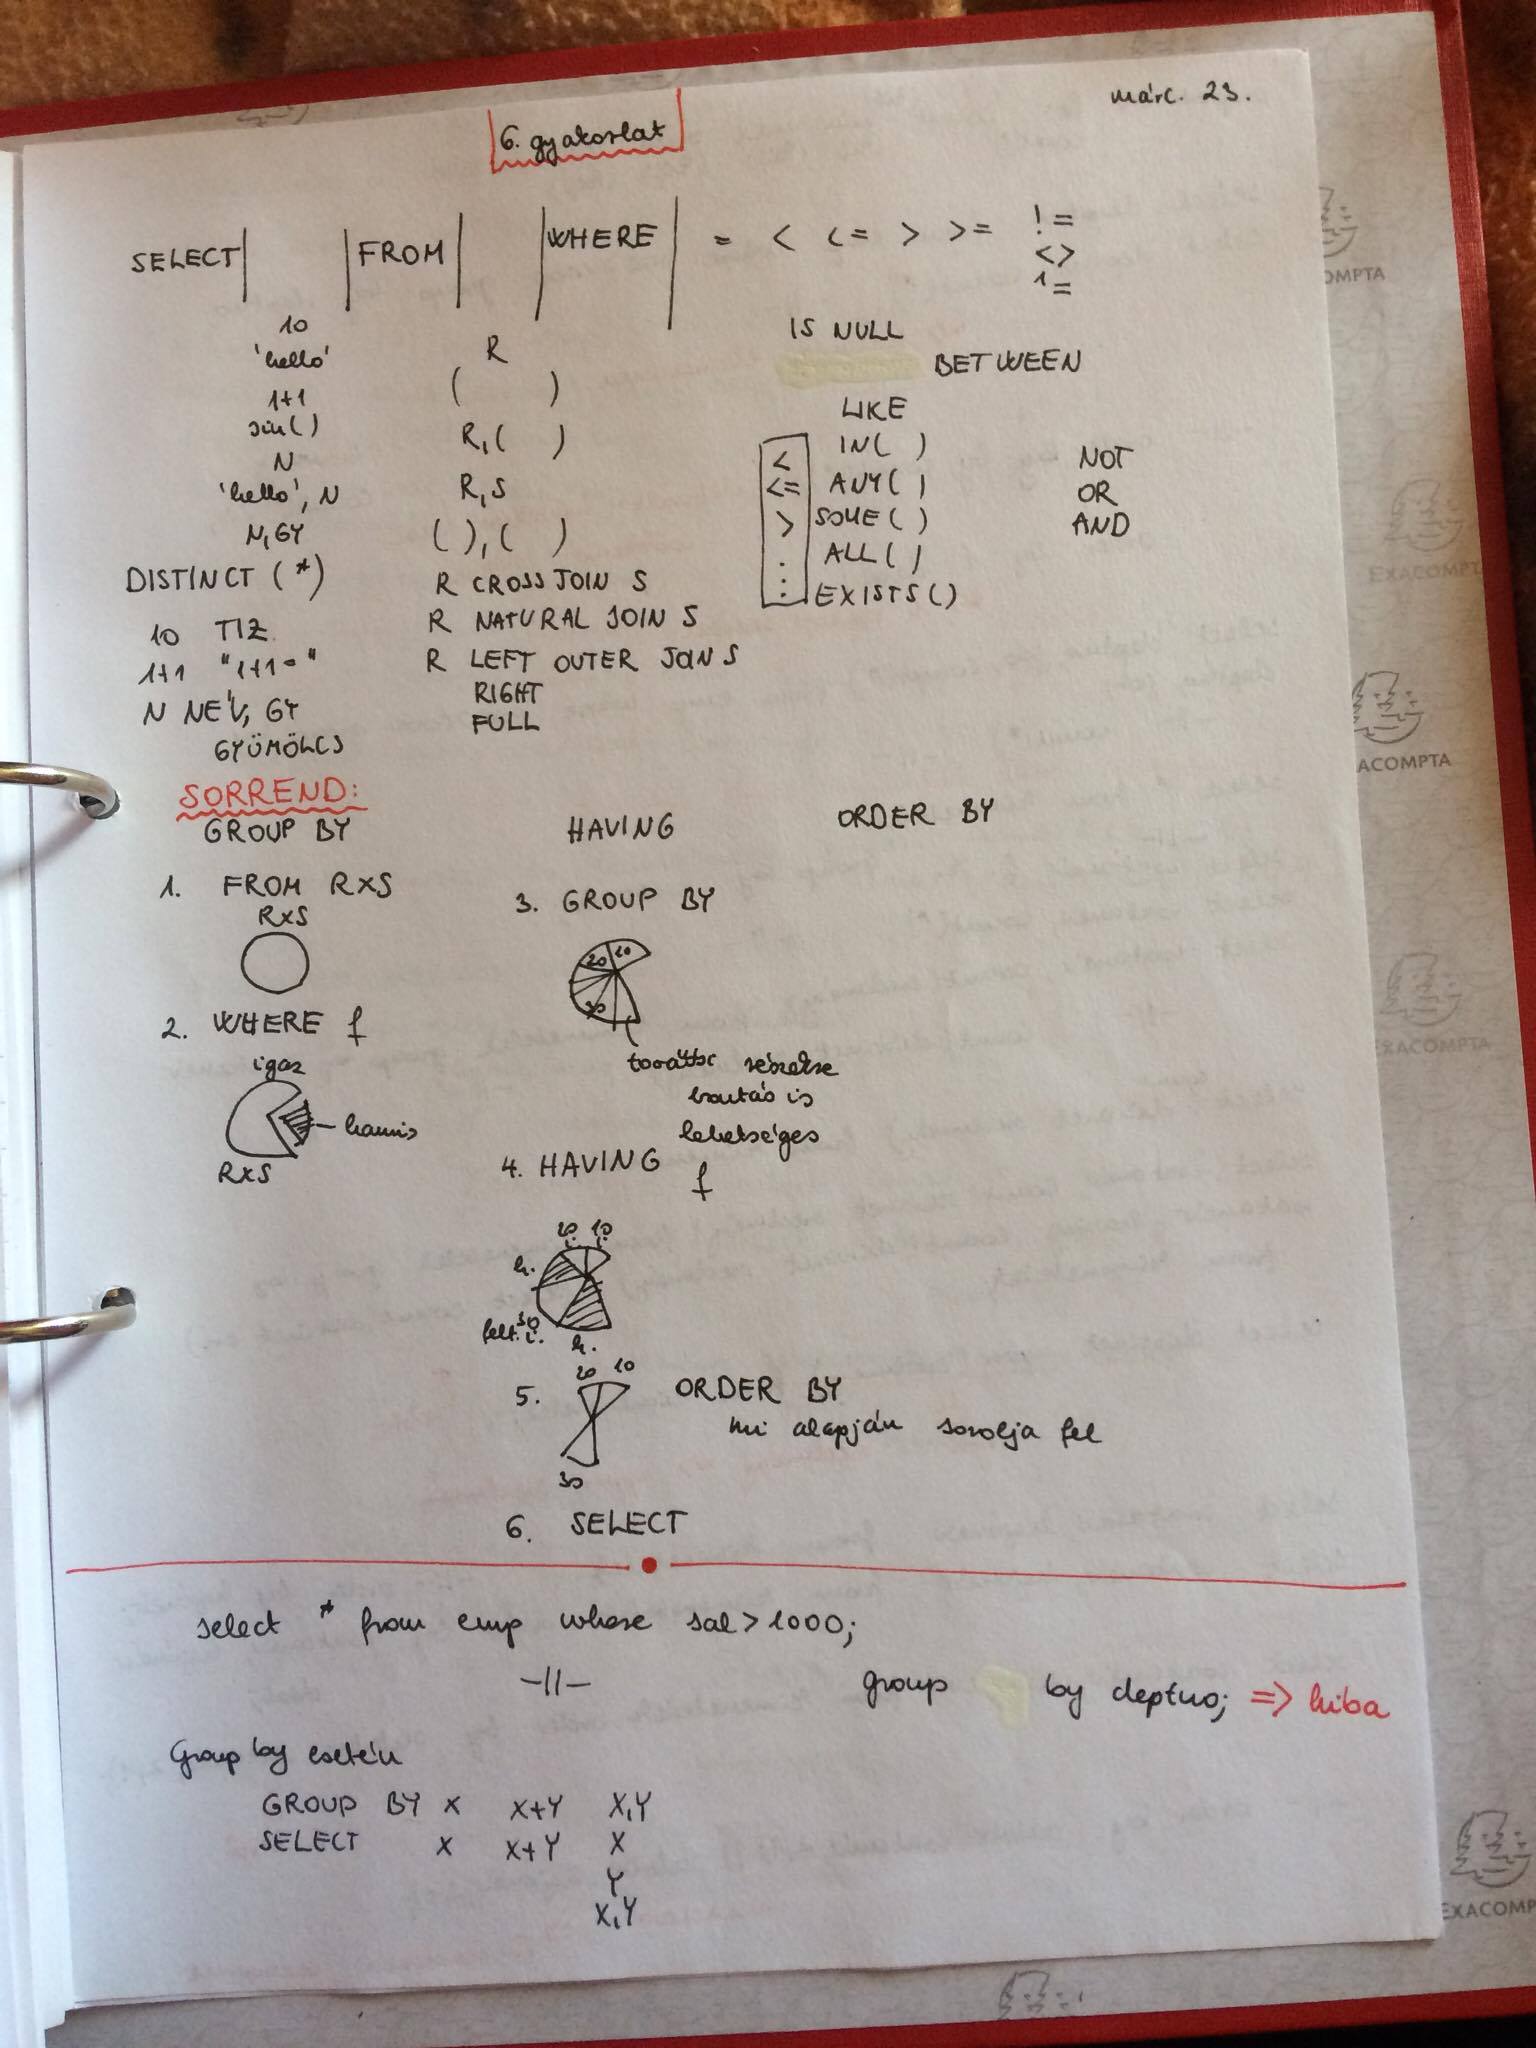 márc. 23.
6. gyakorlat
SELECT FROM WHERE = < <= > >= !=
<>
^=
10
'hello'
1+1
sin()
N
'hello', N
N, GY
DISTINCT (*)
10 TIZ
1+1 "1+1="
N NÉV, GY
GYÜMÖLCS
R
( )
R, ( )
R, S
( ), ( )
R CROSS JOIN S
R NATURAL JOIN S
R LEFT OUTER JOIN S
RIGHT
FULL
IS NULL
BETWEEN
LIKE
< IN( )
<= ANY( )
> SOME( )
. ALL( )
: EXISTS()
NOT
OR
AND
SORREND:
GROUP BY HAVING ORDER BY
1. FROM RxS
RxS
2. WHERE f
igaz
hamis
RxS
3. GROUP BY
20 10
30
további részekre
bontás is
lehetséges
4. HAVING f
20 10
i. i.
h.
30
felt. i.
h.
20 10
5. ORDER BY
mi alapján sorolja fel
30
6. SELECT
select * from emp where sal>1000;
-||- group by deptno; => hiba
Group by esetén
GROUP BY X X+Y X,Y
SELECT X X+Y X
Y
X,Y
EXACOMPTA
EXACOMPTA
EXACOMPTA
EXACOMPTA
EXACOMPTA